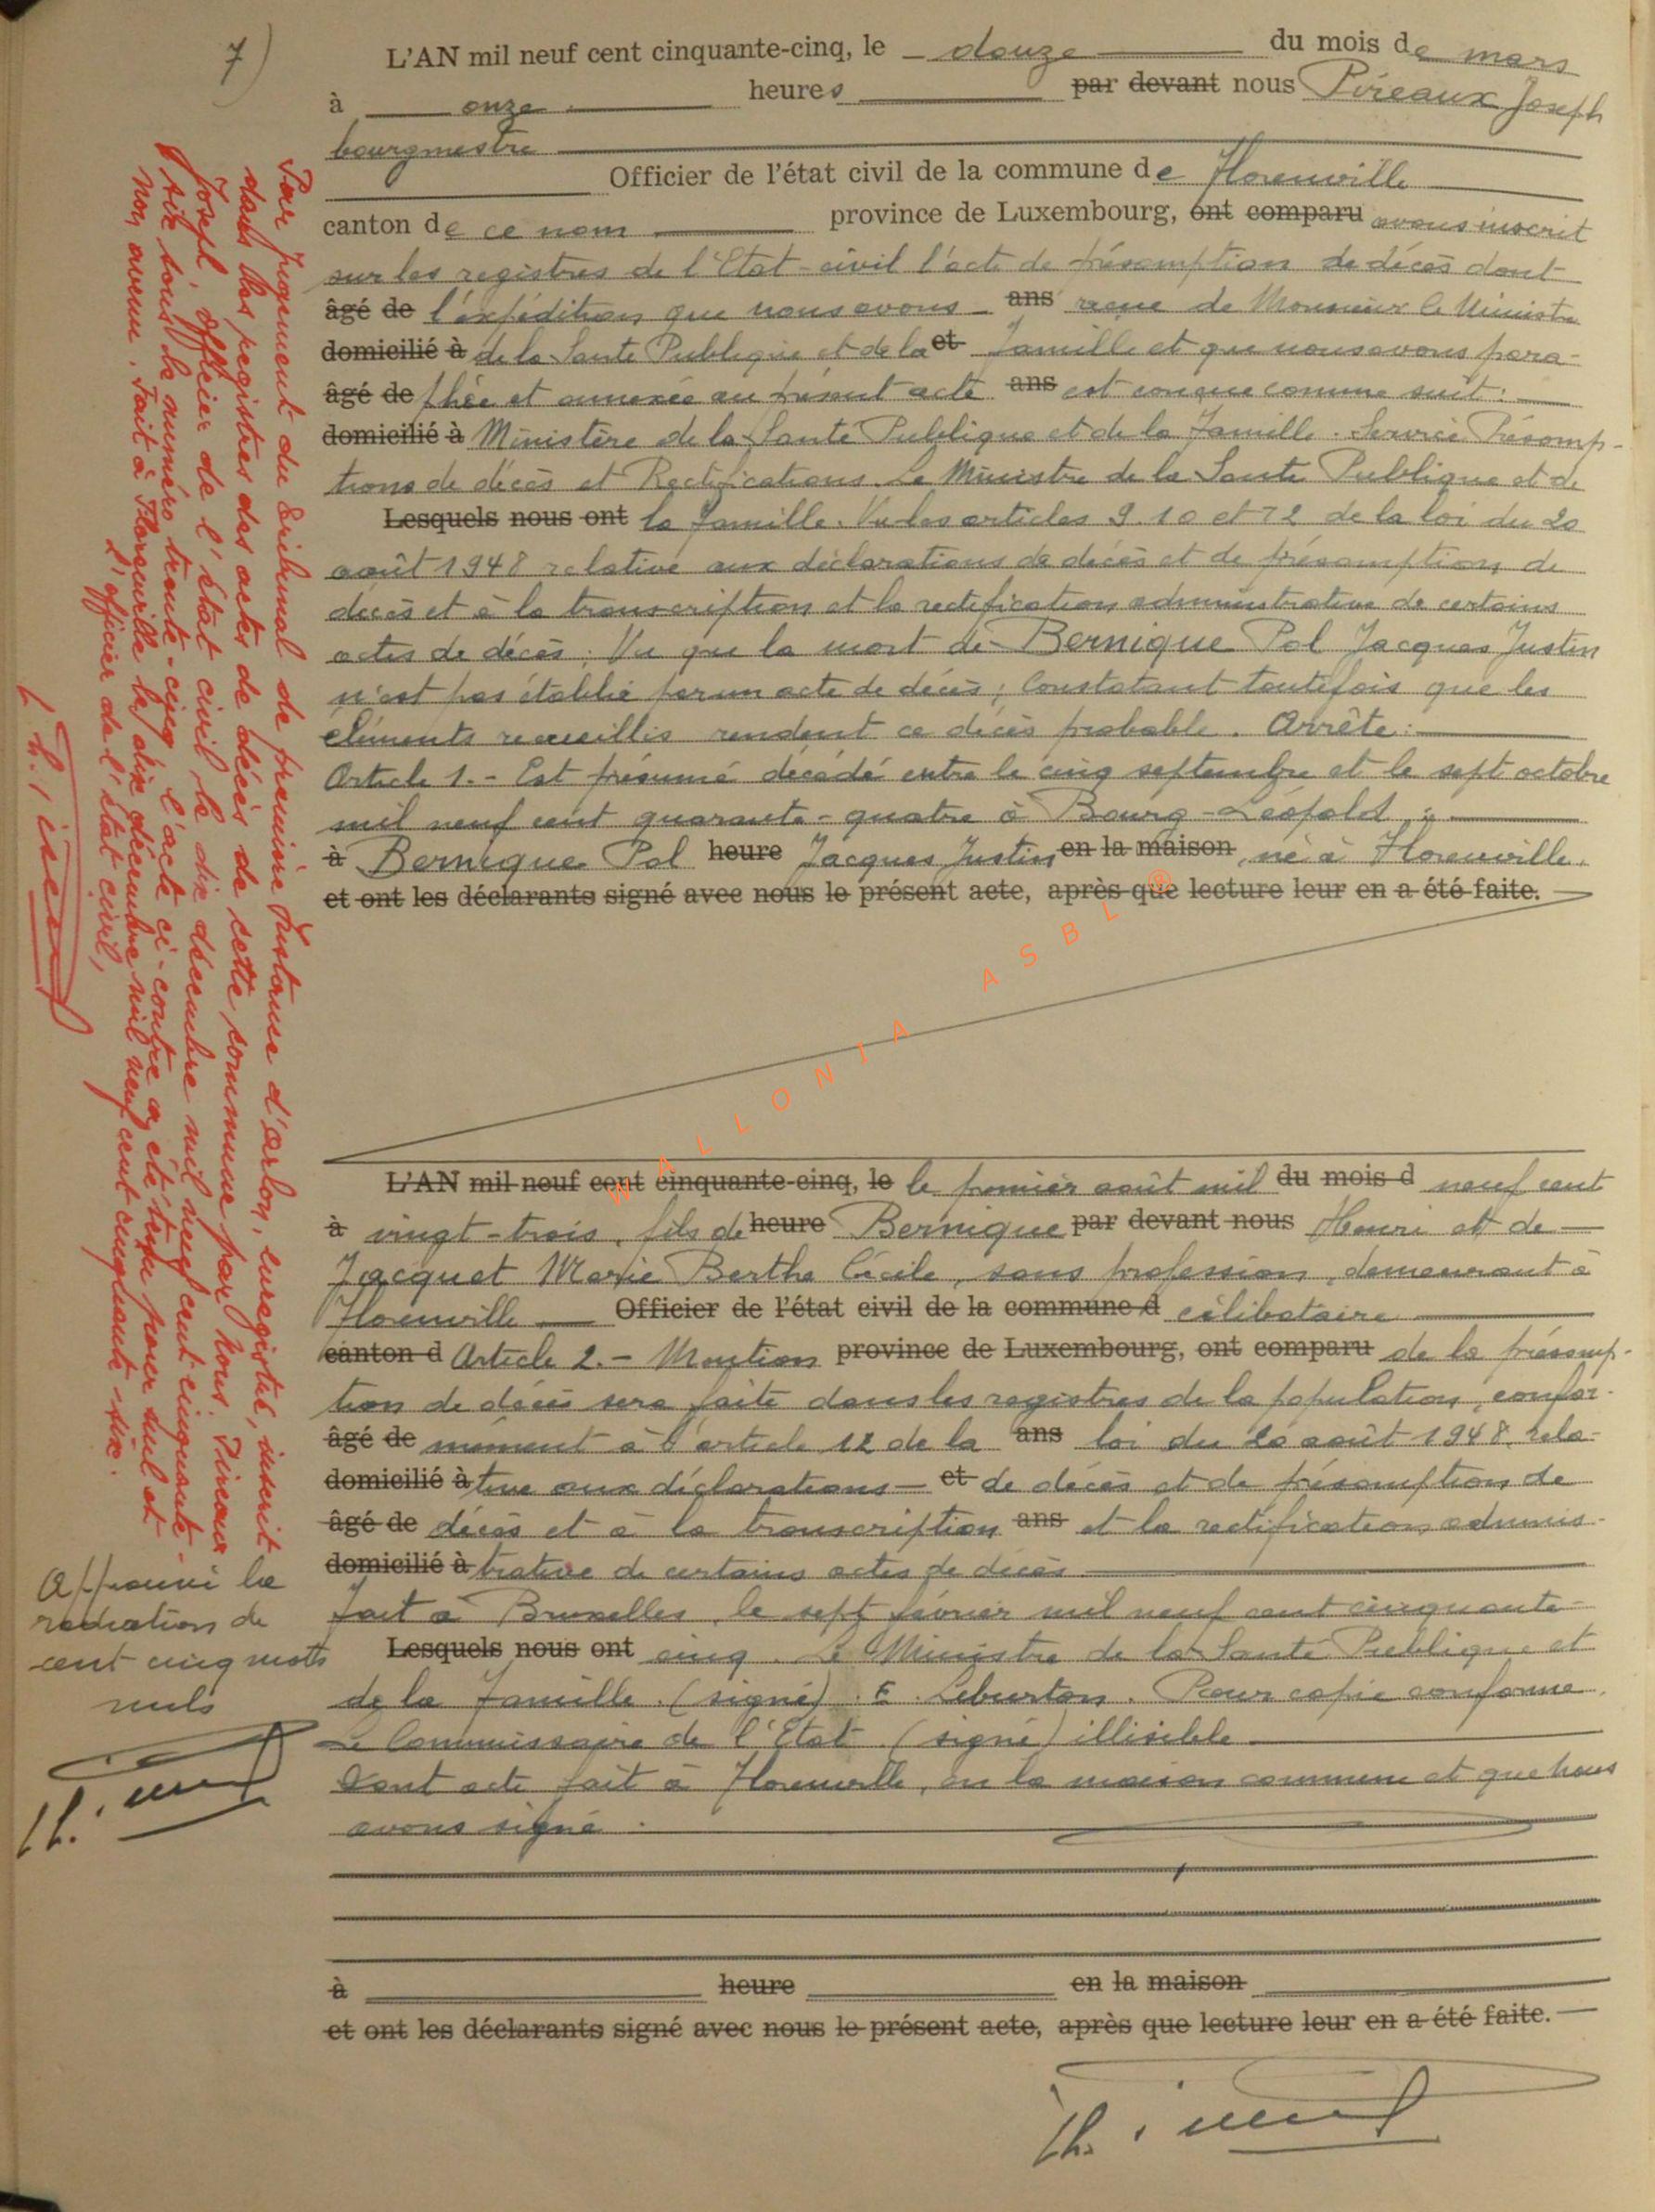 7)
L'AN mil neuf cent cinquante-cinq, le douze du mois de mars
à onze heures par devant nous Pireaux Joseph
bourgmestre
Officier de l'état civil de la commune de Florenville
canton de ce nom province de Luxembourg, ont comparu avons inscrit
sur les registres de l'Etat-civil l'acte de présomption de décès dont
âgé de l'expédition que nous avons ans reçue de Monsieur le Ministre
domicilié à de la Santé Publique et de la et Famille et que nous avons para-
âgé de phée et annexée au présent acte ans est conçue comme suit :
domicilié à Ministère de la Santé Publique et de la Famille. Service Présomp-
tions de décès et Rectifications. Le Ministre de la Santé Publique et de
Lesquels nous ont la Famille. Vu les articles 9. 10 et 72 de la loi du 20
août 1948 relative aux déclarations de décès et de présomption de
décès et à la transcription et la rectification administrative de certains
actes de décès ; Vu que la mort de Bernique Pol Jacques Justin
n'est pas établie par un acte de décès ; Constatant toutefois que les
éléments recueillis rendent ce décès probable. Arrête :
Article 1. - Est présumé décédé entre le cinq septembre et le sept octobre
mil neuf cent quarante-quatre à Bourg-Léopold :
à Bernique Pol heure Jacques Justin, en la maison né à Florenville,
et ont les déclarants signé avec nous le présent acte, après que lecture leur en a été faite.
WALLONIA ASBL ®
L'AN mil neuf cent cinquante-cinq, le le premier août mil du mois d neuf cent
à vingt-trois, fils de heure Bernique par devant nous Henri et de
Jacquet Marie Berthe Cécile, sans profession, demeurant à
Florenville Officier de l'état civil de la commune d célibataire
canton d Article 2. - Mention province de Luxembourg, ont comparu de la présomp-
tion de décès sera faite dans les registres de la population, confor-
âgé de mément à l'article 12 de la ans loi du 20 août 1948 rela-
domicilié à tive aux déclarations et de décès et de présomption de
âgé de décès et à la transcription ans et la rectification adminis-
domicilié à trative de certains actes de décès
Fait à Bruxelles, le sept février mil neuf cent cinquante-
Lesquels nous ont cinq. Le Ministre de la Santé Publique et
de la Famille. (signé). E. Leburton. Pour copie conforme.
Le Commissaire de l'Etat (signé) illisible
Dont acte fait à Florenville, en la maison commune et que nous
avons signé.
à heure en la maison
et ont les déclarants signé avec nous le présent acte, après que lecture leur en a été faite.
Par jugement du tribunal de première Instance d'Arlon, enregistré, inscrit
dans les registres des actes de décès de cette commune par nous, Pireaux
Joseph, officier de l'état civil le dix décembre mil neuf cent cinquante-
six sous le numéro trente-cinq l'acte ci-contre a été tenu pour nul et
non avenu. Fait à Florenville le dix décembre mil neuf cent cinquante-six.
L'officier de l'état civil,
Approuvé la
radiation de
cent cinq mots
nuls